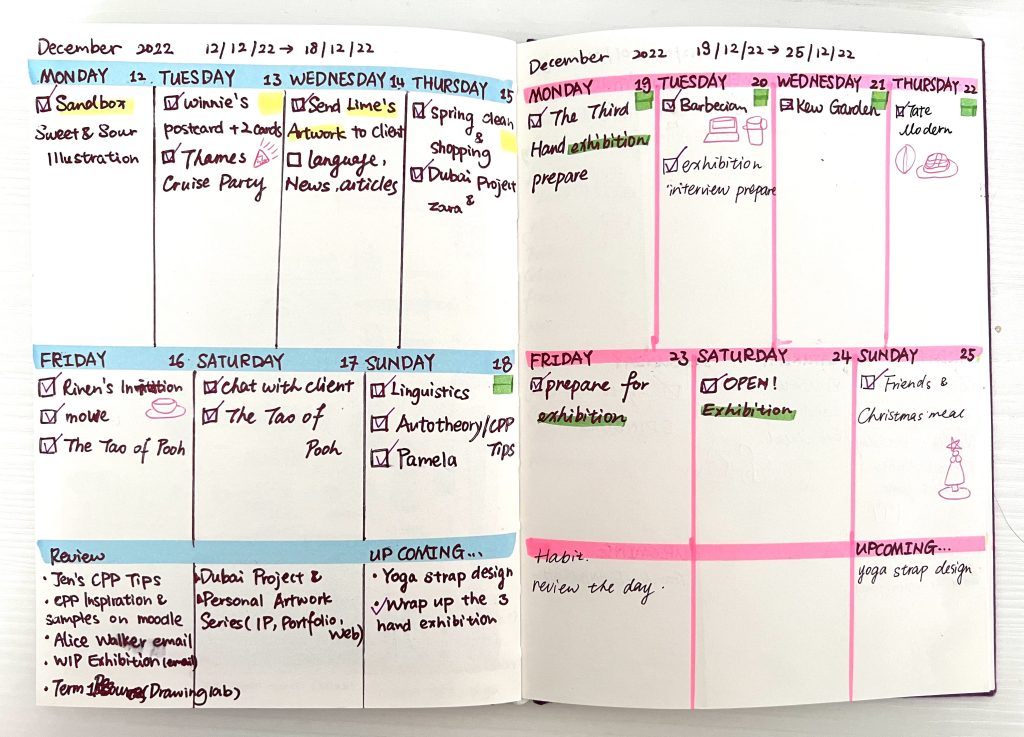 December 2022 12/12/22 → 18/12/22
MONDAY 12.
Sandbox
Sweet & Sour
Illustration
TUESDAY 13
Winnie's
postcard + 2 cards
Thames
Cruise Party
WEDNESDAY 14
Send Lime's
Artwork to client
language,
News, articles
THURSDAY 15
Spring clean
&
shopping
Dubai Project
&
Zara
FRIDAY 16.
Rinen's
mowe
The Tao of Pooh
SATURDAY 17
chat with client
The Tao of
Pooh
SUNDAY 18
Linguistics
Autotheory/CPP
TIPS
Pamela
Review
• Jen's CPP Tips
• CPP Inspiration &
samples on moodle
• Alice Walker email
• WIP Exhibition (email)
• Term 1 (Drawing lab)
Dubai Project &
Personal Artwork
Series (IP, Portfolio,
Web)
UPCOMING...
• Yoga strap design
• Wrap up the 3
hand exhibition
December 2022 19/12/22 → 25/12/22
MONDAY 19
The Third
Hand exhibition
prepare
TUESDAY 20
Barbecian
exhibition
interview prepare
WEDNESDAY 21
Kew Garden
THURSDAY 22
Tate
Modern
FRIDAY 23
prepare for
exhibition
SATURDAY 24
OPEN!
Exhibition
SUNDAY 25
Friends &
Christmas meal
Habit.
review the day.
UPCOMING...
yoga strap design